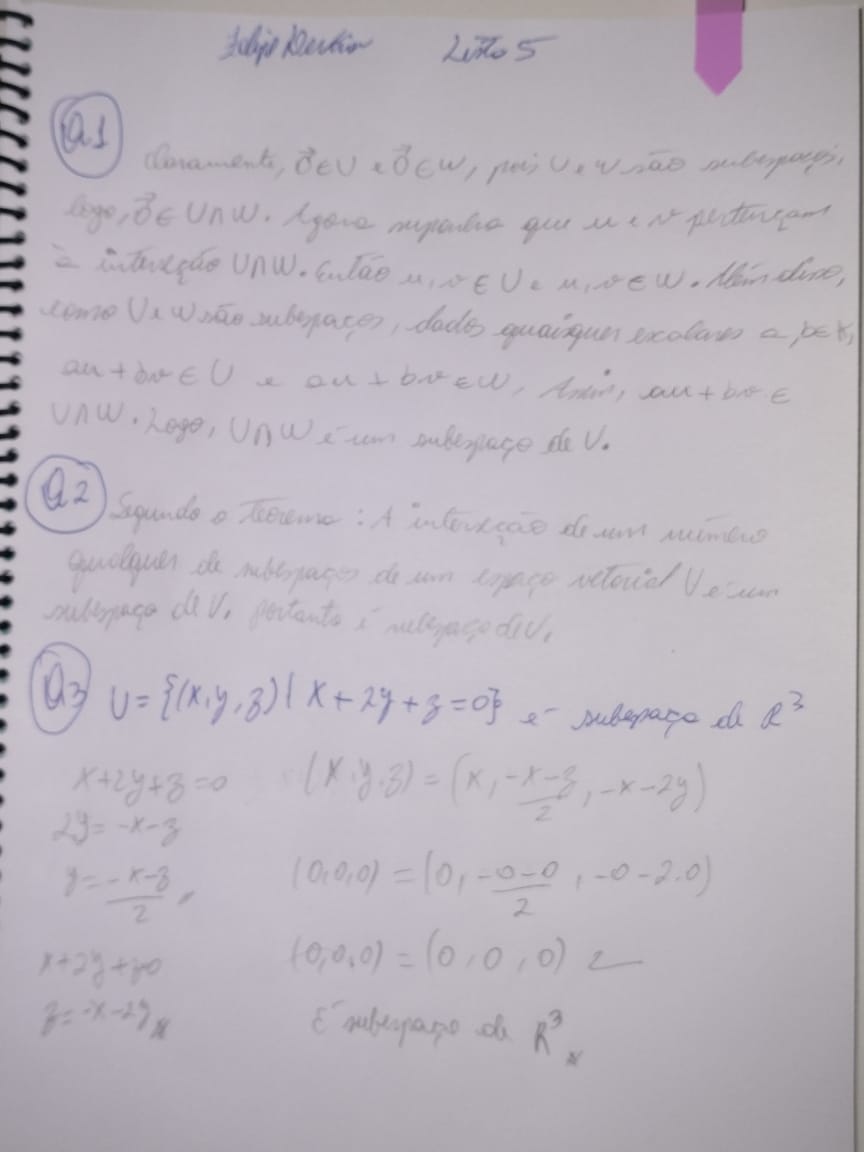 Felipe Lista 5
Q1
Claramente, 0⃗ ∈ U e 0⃗ ∈ W, pois U e W são subespaços,
logo, 0⃗ ∈ U∩W. Agora suponha que u e v pertençam
à interseção U∩W. Então u, v ∈ U e u, v ∈ W. Além disso,
como U e W são subespaços, dados quaisquer escalares a, b ∈ K,
au + bv ∈ U e au + bv ∈ W, Assim, au + bv ∈
U∩W. Logo, U∩W é um subespaço de V.
Q2
Segundo o Teorema: A interseção de um número
qualquer de subespaços de um espaço vetorial V é um
subespaço de V, portanto é subespaço de V.
Q3 U = {(x, y, z) | x + 2y + z = 0} é subespaço de R³
x + 2y + z = 0 (x, y, z) = (x, (-x-z)/2, -x-2y)
2y = -x - z
y = (-x-z)/2 (0,0,0) = (0, (-0-0)/2, -0-2.0)
x + 2y + z=0 (0,0,0) = (0, 0, 0)
z = -x - 2y É subespaço de R³